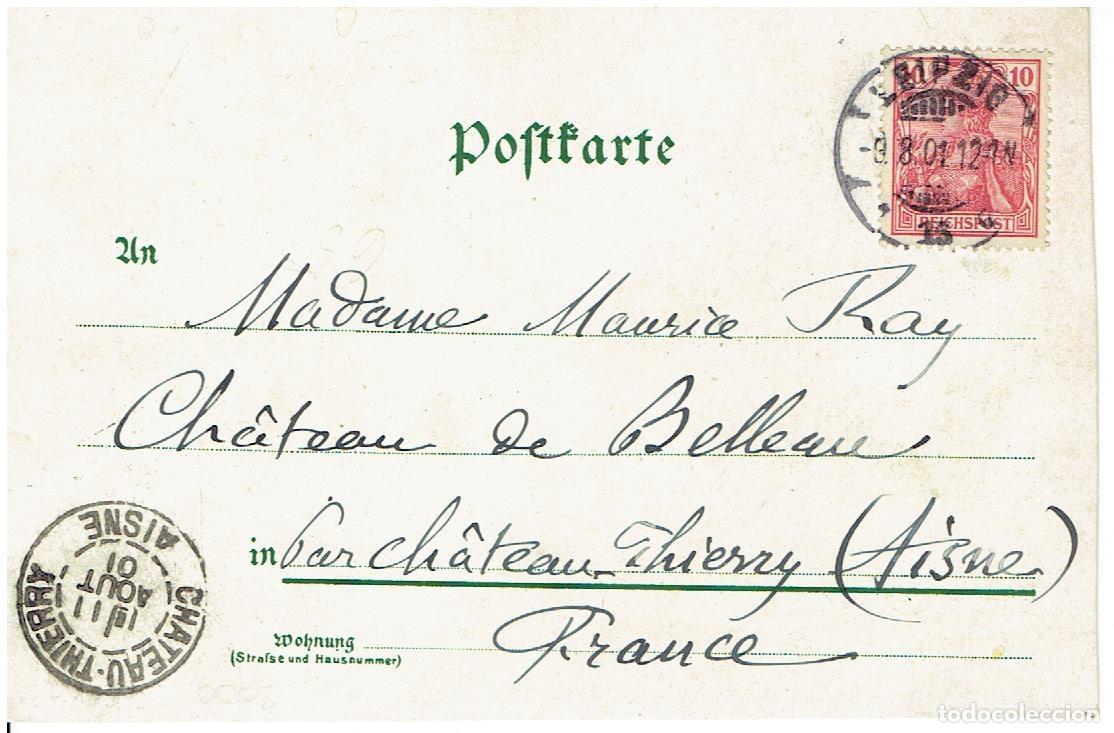 10 10
LEIPZIG
9.8.01.12-1N
13
REICHSPOST
Postkarte
An
Madame Maurice Ray
Château de Belleau
in Par Château-Thierry (Aisne)
France
Wohnung
(Straſse und Hausnummer)
CHATEAU-THIERRY
AISNE
11
AOUT
01
todocoleccion